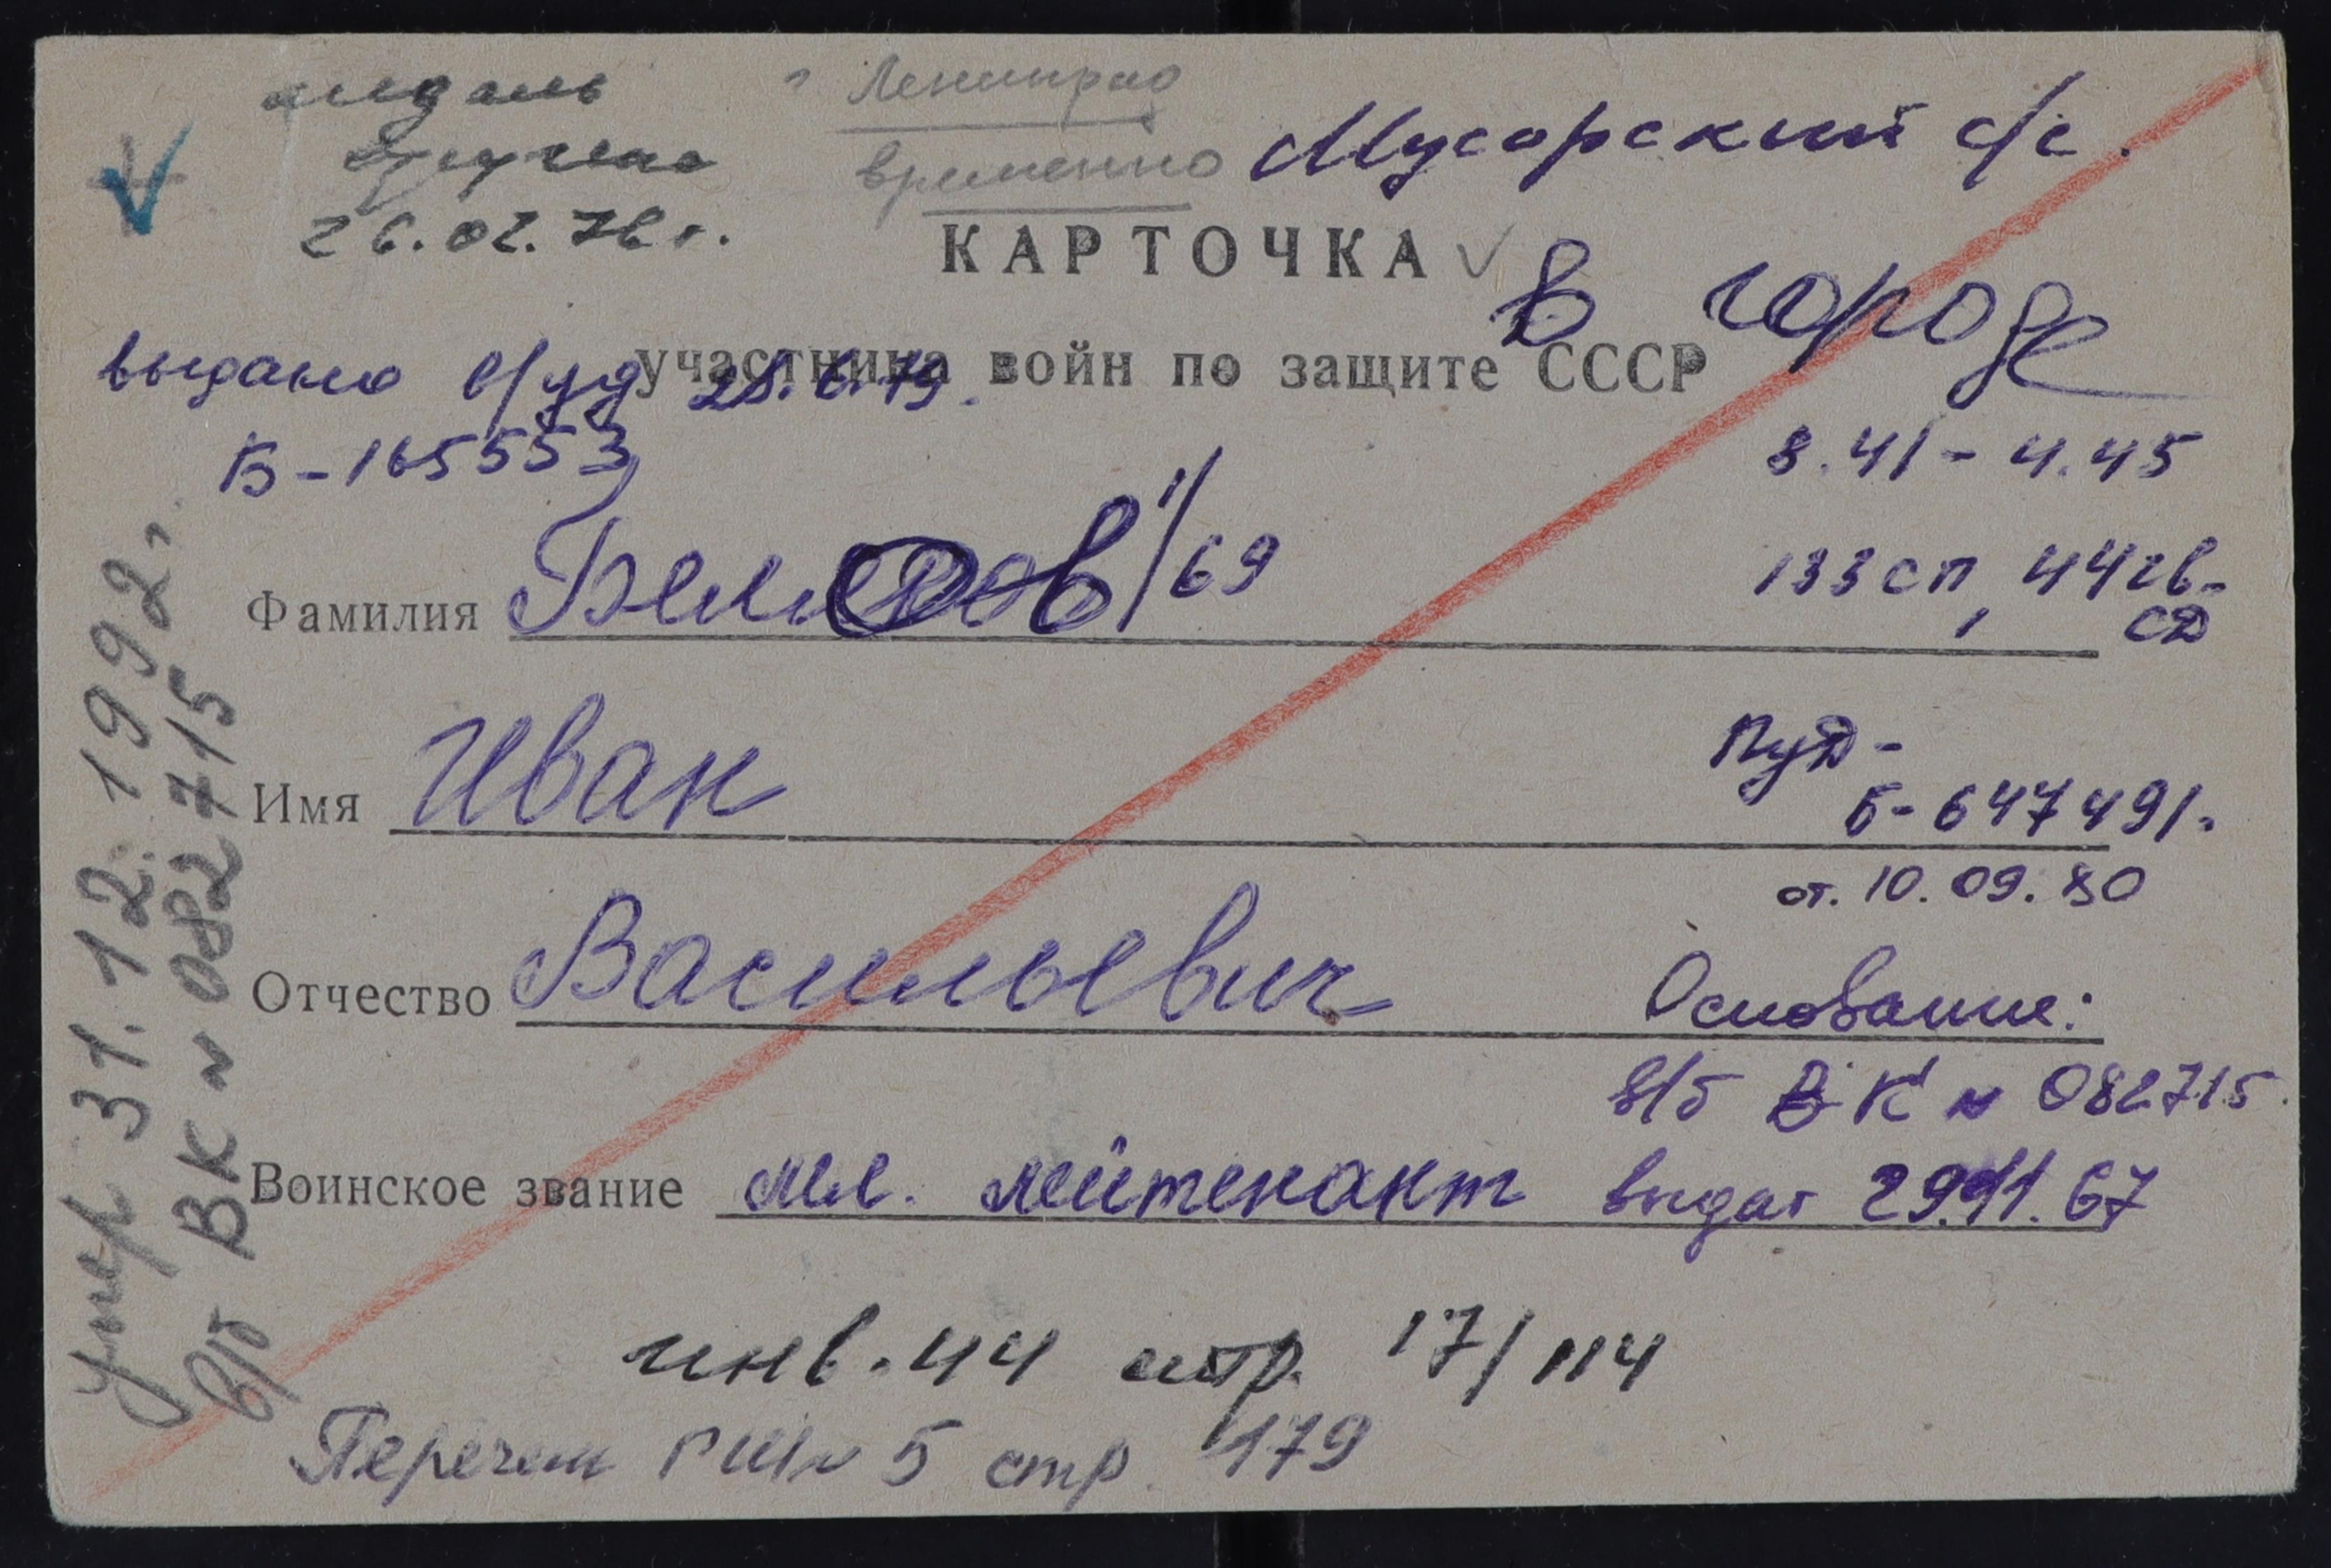 медаль
вручена
26.02.76 г.
г Ленинград
временно
Мусорский с/с.
КАРТОЧКА
в городе
участника войн по защите СССР
выдано в/уд 28.6.79.
Б-165553
8.41 - 4.45
133 сп, 44 гв.
СД
Фамилия 1/69
Имя Иван
ПуД-
Б-647491.
от. 10.09.80
Отчество Васильевич
Основание:
в/б ВК № 082715.
Воинское звание мл. лейтенант выдат 29.11.67
инв. 44 стр. 17/114
Перечень РШ № 5 стр. 179
умер 31.12.1992 г.
В/б ВК № 082715